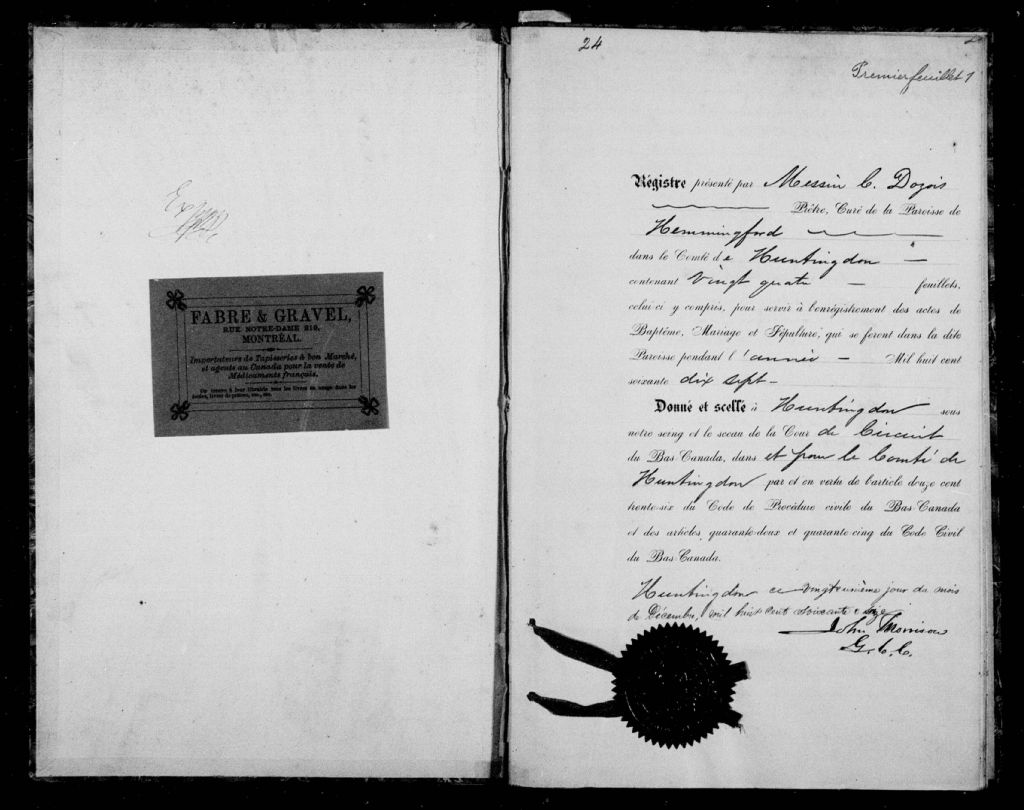 FABRE & GRAVEL,
RUE NOTRE-DAME 219,
MONTRÉAL.
Importateurs de Tapisseries à bon Marché,
et agents au Canada pour la vente de
Médicaments français.
On trouve à leur librairie tous les livres en usage dans les
écoles, livres de prières, etc., etc.
24
Premier feuillet 1
Régistre présenté par Messire C. Dozois
Prêtre, Curé de la Paroisse de
Hemmingford
dans le Comté de Huntingdon
contenant vingt quatre feuillets,
celui-ci y compris, pour servir à l'enrégistrement des actes de
Baptême, Mariage et Sépulture, qui se feront dans la dite
Paroisse pendant l'année Mil huit cent
soixante dix sept
Donné et scellé à Huntingdon sous
notre seing et le sceau de la Cour de Circuit
du Bas-Canada, dans et pour le Comté de
Huntingdon par et en vertu de l'article douze cent
trente-six du Code de Procédure civile du Bas-Canada
et des articles quarante-deux et quarante-cinq du Code Civil
du Bas-Canada.
Huntingdon ce vingt unième jour du mois
de Décembre, mil huit cent soixante & seize
John Morrison
G. C. C.